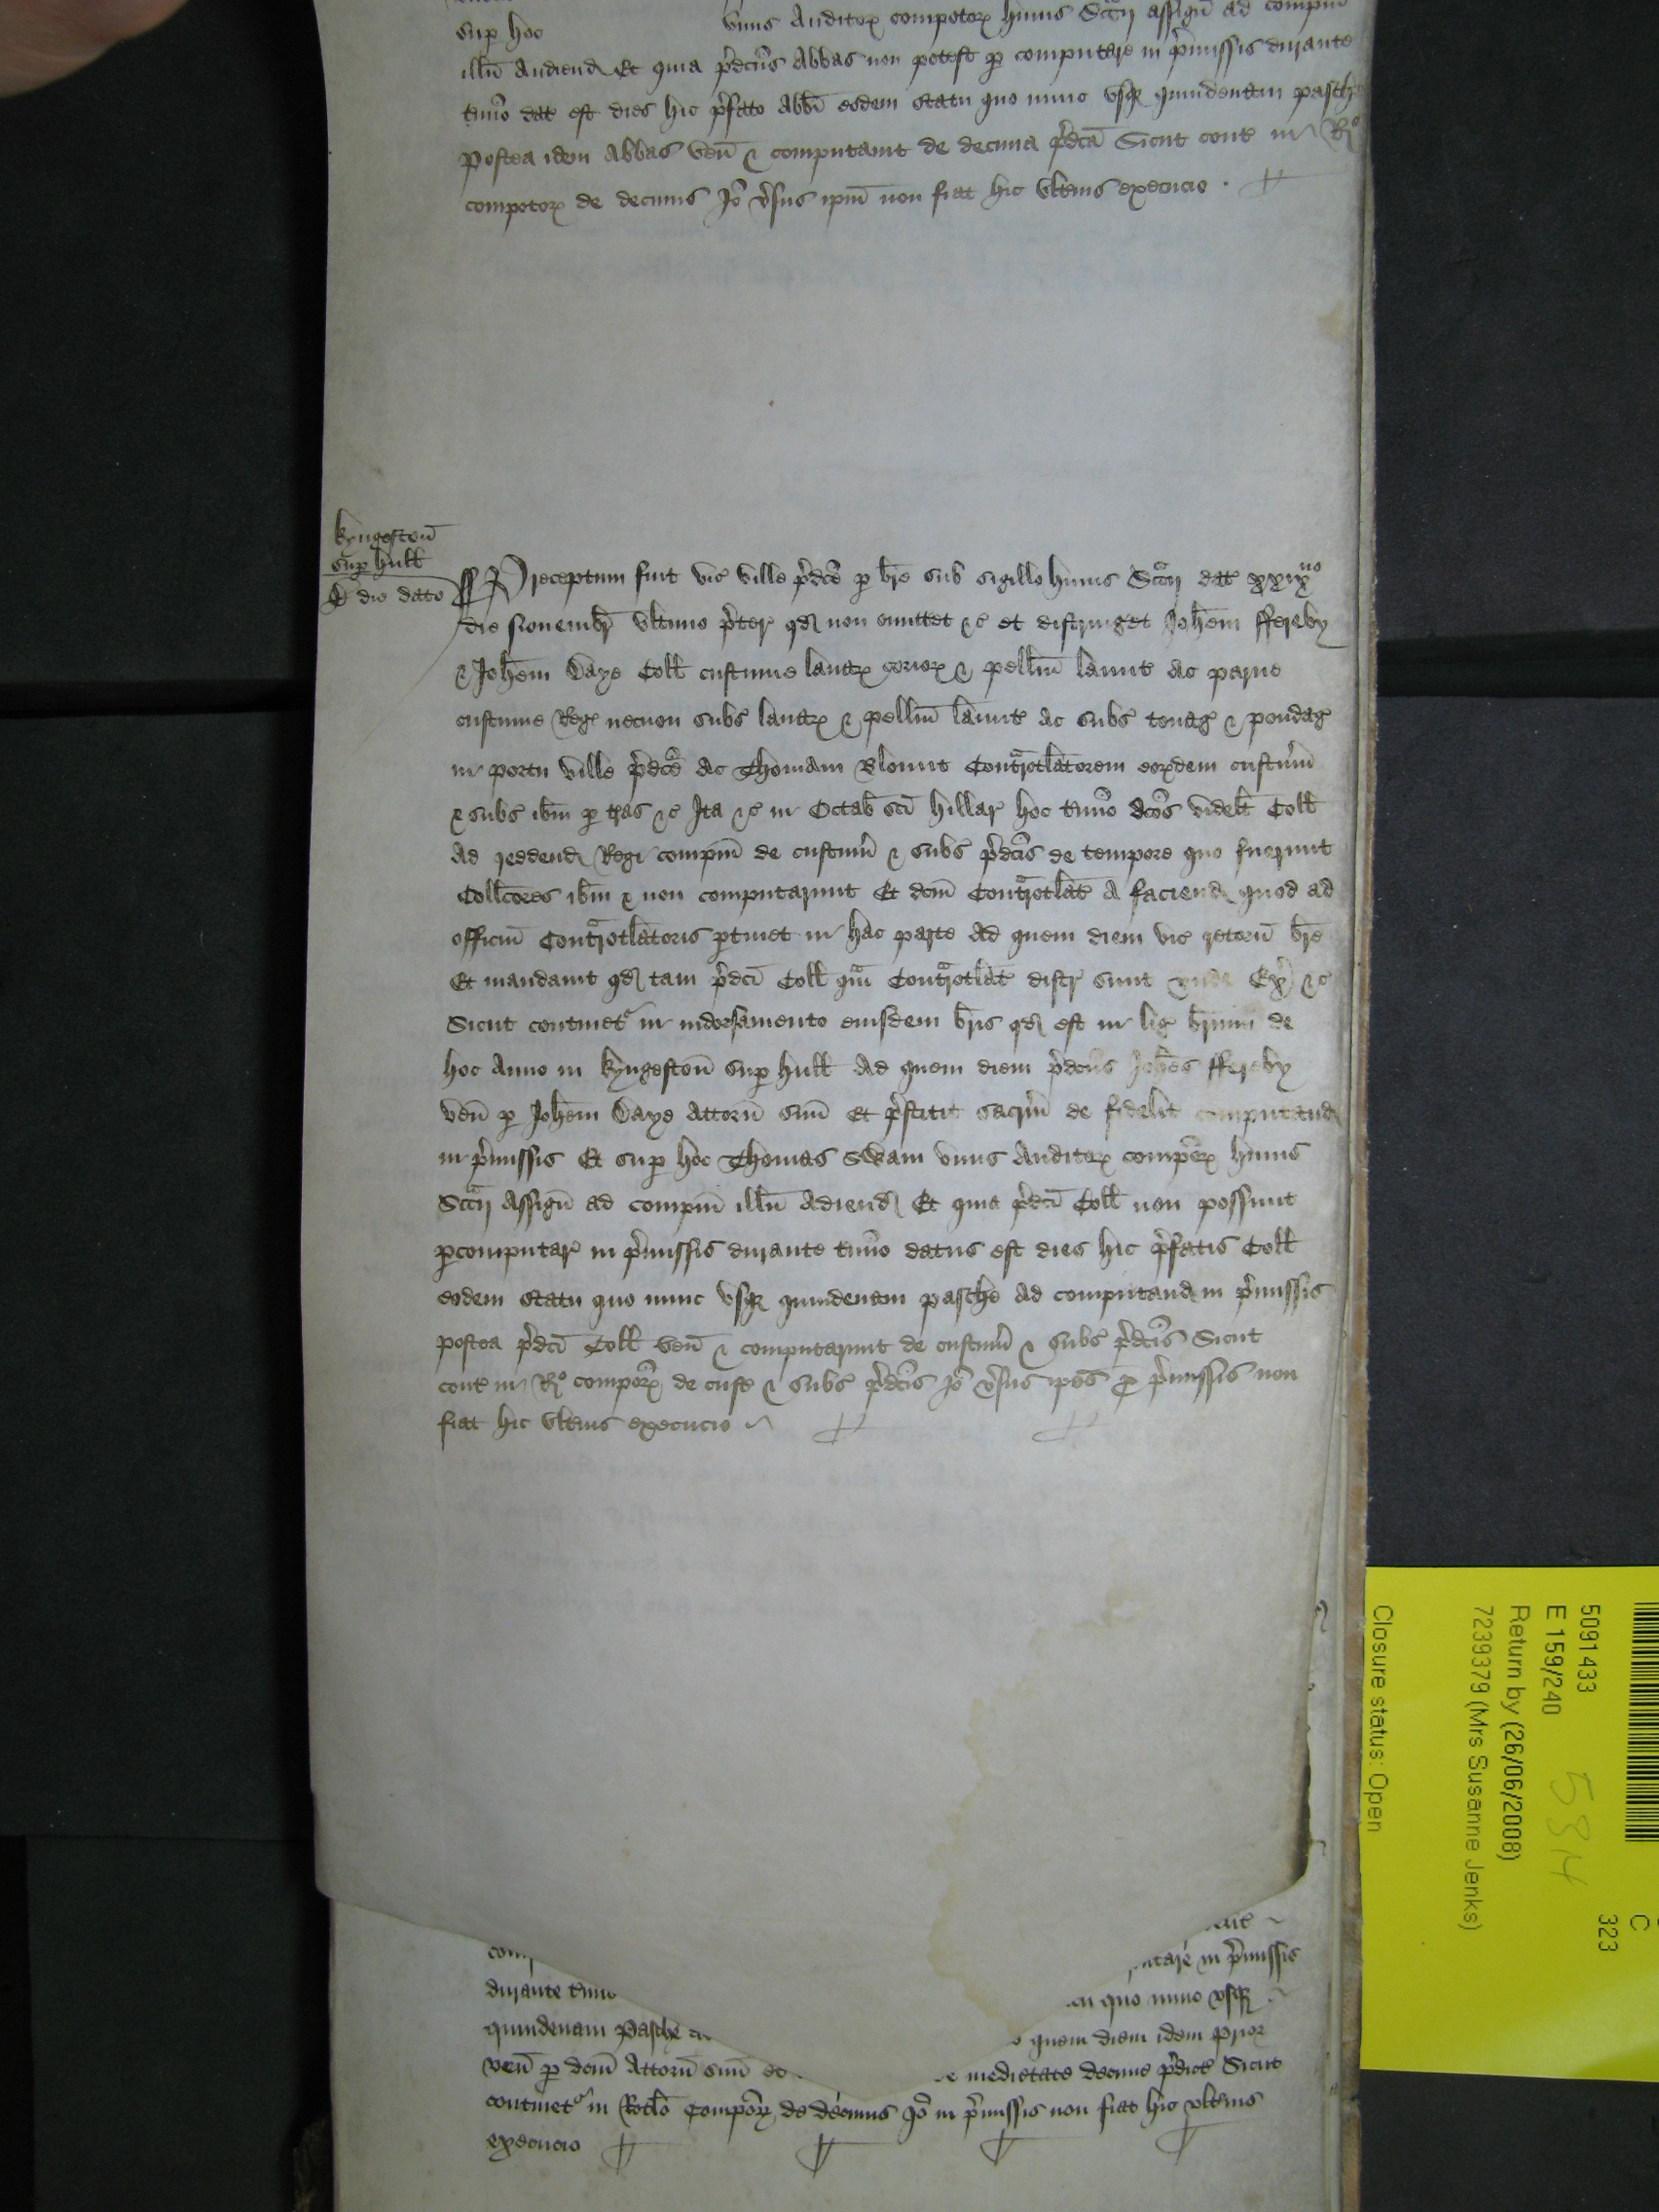 sup hoc unus Auditoꝝ compotoꝝ huius Sccij assigñ ad compm̄
illm̄ Audiend Et quia p̄dcūs Abbas non potest p computare in p̄missis durante
tmīo dat est dies hic p̄fato Abbi eodem statu quo nunc usqꝫ quindenam pasche
Postea idem Abbas veñ & computauit de decima p̄dcā Sicut cont in Ro
compotoꝝ de decimis Io v̄sus ipm̄ non fiat hic vlterius execucio
kyngestoñ
sup hull
De die dato
Preceptum fuit vic ville p̄dcē p brē sub sigillo huius Sccij dat xxixno
die Nouembr̄ vltimo p̄ter qd non omittet &c et distringet Joh̄em ffereby
& Joh̄em Daye Coll custume lanaꝝ corioꝝ & pelliū lanut ac parue
custume Reg necnon subs lanaꝝ & pelliū lanut ac subs tonag & pondag
in portu ville p̄dcē ac Thomam Blount Contrārotlatorem eoꝝdem custum̄
& subs ibm̄ p tras &c Ita &c in Octab sci hillar hoc tmīo dcōs videlt Coll
ad reddend Regi compm̄ de custum̄ & subs p̄dcīs de tempore quo fuerunt
Collcōres ibm̄ & non computarunt Et dcm̄ Contrārotlat A faciend quod ad
officiū Contrārotlatoris ptinet in hac parte Ad quem diem vic retorn̄ brē
Et mandauit qd tam p̄dcī Coll qm̄ Contrārotlat distr sunt unde Ex &c
Sicut continetr in indorsamento eiusdem bris qd est in lig breuiū de
hoc Anno in kyngestoñ sup hull Ad quem diem p̄dcūs Joh̄es ffereby
veñ p Joh̄em Daye Attorñ suū Et p̄stitit sacrm̄ de fidelit computand
in p̄missis Et sup hoc Thomas Swan unus Auditoꝝ compōꝝ huius
Sccij Assigñ ad compm̄ illm̄ Adiend Et quia p̄dcī Coll non possunt
pcomputar in p̄missis durante tmīo datus est dies hic p̄fatis Coll
eodem statu quo nunc usqꝫ quindenam pasche ad computand in p̄missis
postea p̄dcī Coll veñ & computarunt de custum̄ & subs p̄dcīs Sicut
cont in Ro compōꝝ de cust & subs p̄dcīs Io v̄sus ipōs p p̄missis non
fiat hic vlterius execucio
com
tare in p̄missis
durante tmīo
tu quo nunc usqꝫ
quindenam Pasche
quem diem idem prior
veñ p dcm̄ Attorñ suū et
e medietate decime p̄dicte Sicut
continetr in Rotlo Compōꝝ de decimis Io in p̄missis non fiat hic vlterius
execucio
5091433
E 159/240
Return by (26/06/2008)
7239379 (Mrs Susanne Jenks)
Closure status: Open
C
323